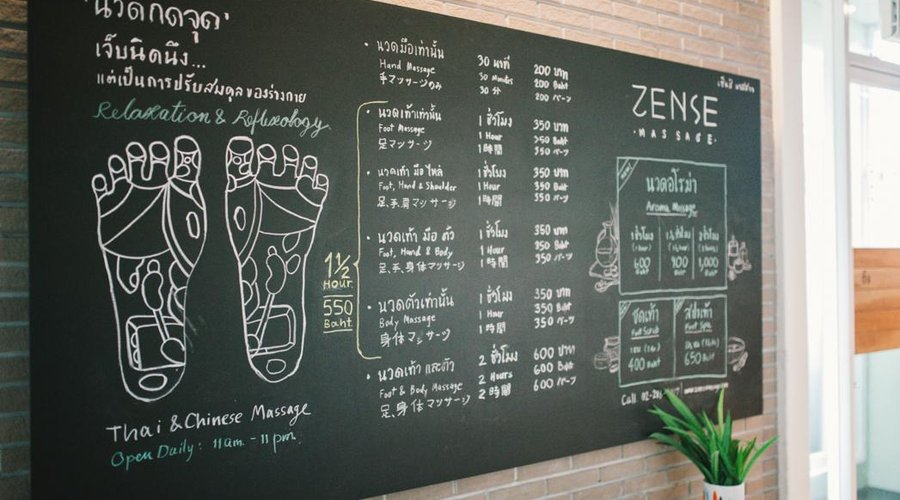 'นวดกดจุด'
เจ็บนิดนึง...
แต่เป็นการปรับสมดุลของร่างกาย
Relaxation & Reflexology
Thai & Chinese Massage
Open Daily: 11am. - 11 pm.
1 1/2
Hour
550
Baht
• นวดมือเท่านั้น 30 นาที 200 บาท
Hand Massage 30 Minutes 200 Baht
手マッサージのみ 30 分 200 バーツ
• นวดเท้าเท่านั้น 1 ชั่วโมง 350 บาท
Foot Massage 1 Hour 350 Baht
足マッサージ 1 時間 350 バーツ
• นวดเท้า มือ ไหล่ 1 ชั่วโมง 350 บาท
Foot, Hand & Shoulder 1 Hour 350 Baht
足、手、肩マッサージ 1 時間 350 バーツ
• นวดเท้า มือ ตัว 1 ชั่วโมง 350 บาท
Foot, Hand & Body 1 Hour 350 Baht
足、手、身体マッサージ 1 時間 350 バーツ
• นวดตัวเท่านั้น 1 ชั่วโมง 350 บาท
Body Massage 1 Hour 350 Baht
身体マッサージ 1 時間 350 バーツ
• นวดเท้า และตัว 2 ชั่วโมง 600 บาท
Foot & Body Massage 2 Hours 600 Baht
足、身体マッサージ 2 時間 600 バーツ
ZENSE
• MASSAGE •
นวดอโรม่า
Aroma Massage
1 ชั่วโมง 1 1/2 ชั่วโมง 2 ชั่วโมง
600 900 1,000
Baht Baht Baht
ขัดเท้า สปาเท้า
Foot Scrub Foot Spa
400 Baht 650 Baht
Call. 02-